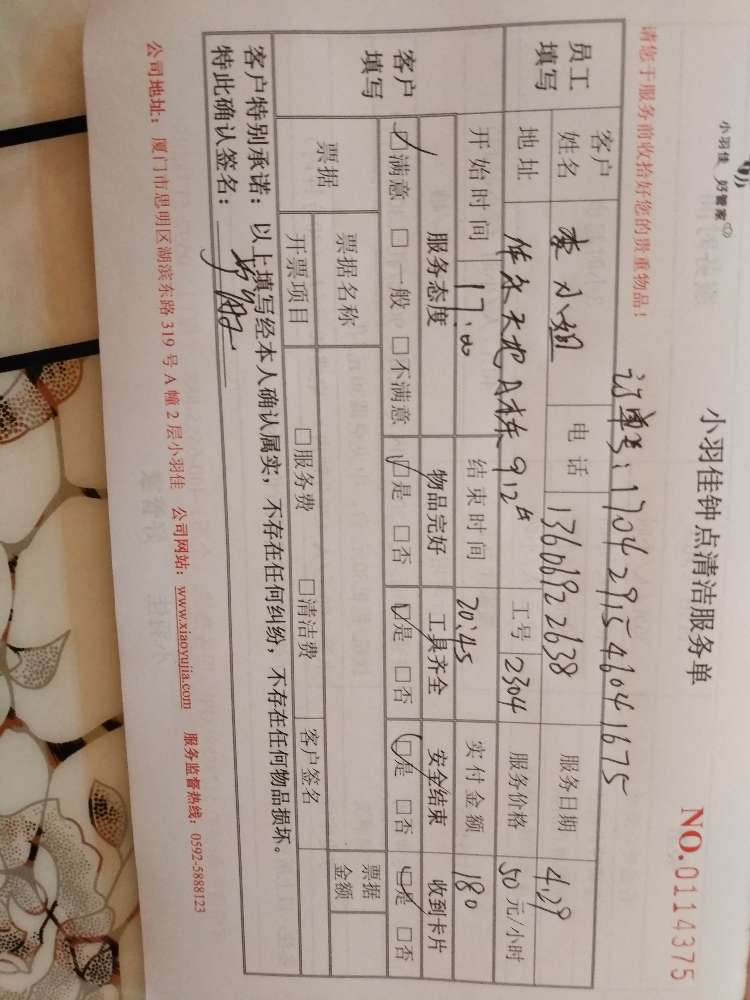 小羽佳 好管家
小羽佳钟点清洁服务单
NO.0114375
请您于服务前收拾好您的贵重物品!
订单号:1704291546041675
员工填写 客户姓名 李小姐 电话 13606922638 服务日期 4.29
地址 A栋912 工号 2304 服务价格 50 元/小时
开始时间 17:00 结束时间 20:45 实付金额 180
客户填写 服务态度 物品完好 工具齐全 安全结束 收到卡片
☑满意 □一般 □不满意 ☑是 □否 ☑是 □否 ☑是 □否 ☑是 □否
票据 票据名称 票据金额
开票项目 □服务费 □清洁费 客户签名
客户特别承诺:以上填写经本人确认属实,不存在任何纠纷,不存在任何物品损坏。
特此确认签名:
公司地址:厦门市思明区湖滨东路 319 号 A 幢 2 层小羽佳 公司网站:www.xiaoyujia.com 服务监督热线:0592-5888123